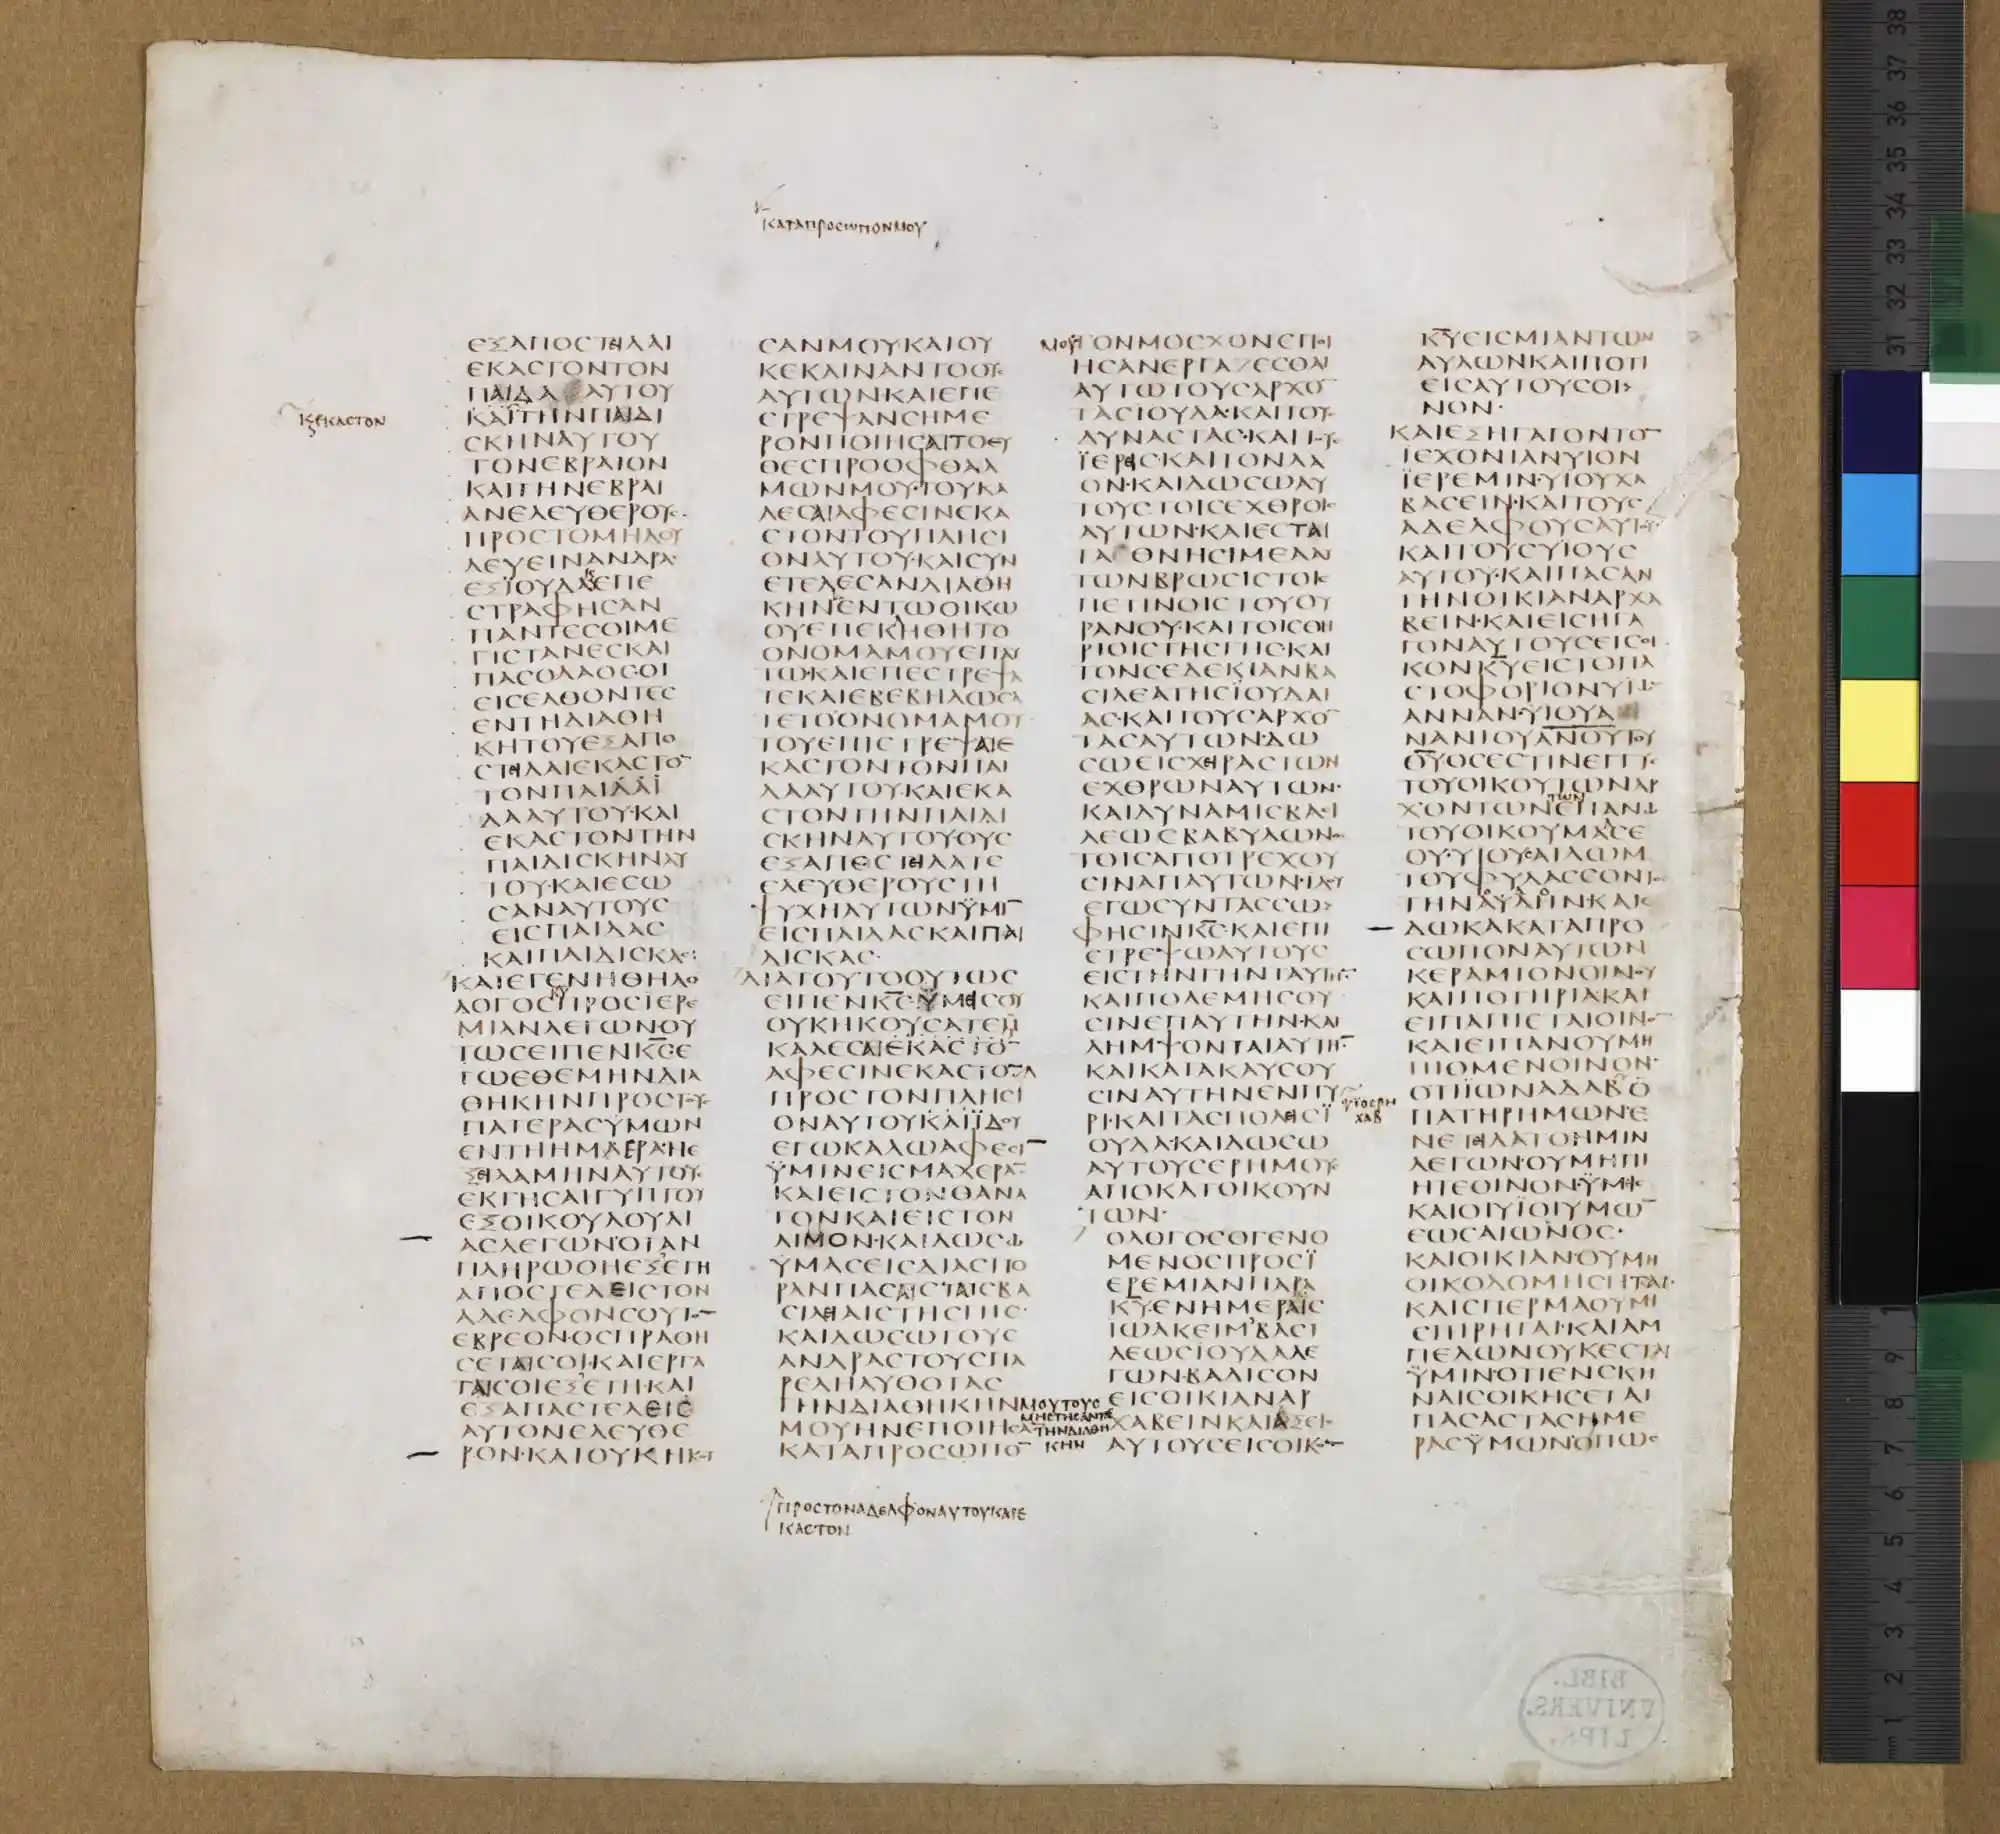 ΚΑΤΑΠΡΟCΩΠΟΝΜΟΥ
ΕΚΑCΤΟΝ
ΕΞΑΠΟCΤΕΙΛΑΙ
ΕΚΑCΤΟΝΤΟΝ
ΠΑΙΔΑ ΑΥΤΟΥ
ΚΑΙΤΗΝΠΑΙΔΙ
CΚΗΝΑΥΤΟΥ
ΤΟΝΕΒΡΑΙΟΝ
ΚΑΙΤΗΝΕΒΡΑΙ
ΑΝΕΛΕΥΘΕΡΟΥC
ΠΡΟCΤΟΜΗΔΟΥ
ΛΕΥΕΙΝΑΝΔΡΑ
ΕΞΙΟΥΔΑΕΠΕ
CΤΡΑΦΗCΑΝ
ΠΑΝΤΕCΟΙΜΕ
ΓΙCΤΑΝΕCΚΑΙ
ΠΑCΟΛΑΟCΟΙ
ΕΙCΕΛΘΟΝΤΕC
ΕΝΤΗΔΙΑΘΗ
ΚΗΤΟΥΕΞΑΠΟ
CΤΕΙΛΑΙΕΚΑCΤΟ̅
ΤΟΝΠΑΙΔΑΙ
ΔΑΑΥΤΟΥ·ΚΑΙ
ΕΚΑCΤΟΝΤΗΝ
ΠΑΙΔΙCΚΗΝΑΥ
ΤΟΥ·ΚΑΙΕCΩ
CΑΝΑΥΤΟΥC
ΕΙCΠΑΙΔΑC
ΚΑΙΠΑΙΔΙCΚΑC:
ΚΑΙΕΓΕΝΗΘΗΛΟ
ΛΟΓΟCΚΥΠΡΟCΪΕΡΕ
ΜΙΑΝΛΕΓΩΝΟΥ
ΤΩCΕΙΠΕΝΚ̅C̅Ε
ΓΩΕΘΕΜΗΝΔΙΑ
ΘΗΚΗΝΠΡΟCΤΟΥC
ΠΑΤΕΡΑCΥΜΩΝ
ΕΝΤΗΗΜΕΡΑΗΕ
ΞΕΙΛΑΜΗΝΑΥΤΟΥC
ΕΚΓΗCΑΙΓΥΠΤΟΥ
ΕΞΟΙΚΟΥΔΟΥΛΙ
ΑCΛΕΓΩΝΟΤΑΝ
ΠΛΗΡΩΘΗΕΞΕΤΗ
ΑΠΟCΤΕΛΕΙCΤΟΝ
ΑΔΕΛΦΟΝCΟΥΤΟ̅
ΕΒΡΕΟΝΟCΠΡΑΘΗ
CΕΤΑΙCΟΙ·ΚΑΙΕΡΓΑ
ΤΑΙCΟΙΕΞΕΤΗ·ΚΑΙ
ΕΞΑΠΑCΤΕΛΕΙC
ΑΥΤΟΝΕΛΕΥΘΕ
ΡΟΝ·ΚΑΙΟΥΚΗΚΟΥ
CΑΝΜΟΥΚΑΙΟΥ
ΚΕΚΛΙΝΑΝΤΟΟΥC
ΑΥΤΩΝΚΑΙΕΠΕ
CΤΡΕΨΑΝCΗΜΕ
ΡΟΝΠΟΙΗCΑΙΤΟΕΥ
ΘΕCΠΡΟΟΦΘΑΛ
ΜΩΝΜΟΥ·ΤΟΥΚΑ
ΛΕCΑΙΑΦΕCΙΝΕΚΑ
CΤΟΝΤΟΥΠΛΗCΙ
ΟΝΑΥΤΟΥ·ΚΑΙCΥΝ
ΕΤΕΛΕCΑΝΔΙΑΘΗ
ΚΗΝΕΝΤΩΟΙΚΩ
ΟΥΕΠΕΚΛΗΘΗΤΟ
ΟΝΟΜΑΜΟΥΕΠΑΥ
ΤΩ·ΚΑΙΕΠΕCΤΡΕΨΑ
ΤΕΚΑΙΕΒΕΒΗΛΩCΑ
ΤΕΤΟΟΝΟΜΑΜΟΥ
ΤΟΥΕΠΙCΤΡΕΨΑΙΕ
ΚΑCΤΟΝΤΟΝΠΑΙ
ΔΑΑΥΤΟΥ·ΚΑΙΕΚΑ
CΤΟΝΤΗΝΠΑΙΔΙ
CΚΗΝΑΥΤΟΥΟΥC
ΕΞΑΠΕCΤΕΙΛΑΤΕ
ΕΛΕΥΘΕΡΟΥCΤΗ
ΨΥΧΗΑΥΤΩΝΫΜΙ̅
ΕΙCΠΑΙΔΑCΚΑΙΠΑΙ
ΔΙCΚΑC·
ΔΙΑΤΟΥΤΟΟΥΤΩC
ΕΙΠΕΝΚ̅C̅·ΫΜΕΙCΟΥ
ΟΥΚΗΚΟΥCΑΤΕΜ
ΚΑΛΕCΑΙΕΚΑCΤΟ̅
ΑΦΕCΙΝΕΚΑCΤΟC
ΠΡΟCΤΟΝΠΛΗCΙ
ΟΝΑΥΤΟΥΚΑΙΪΔΟΥ
ΕΓΩΚΑΛΩΑΦΕCΙ̅
ΫΜΙΝΕΙCΜΑΧΕΡΑ̅
ΚΑΙΕΙCΤΟΝΘΑΝΑ
ΤΟΝΚΑΙΕΙCΤΟΝ
ΛΙΜΟΝ·ΚΑΙΔΩCΩ
ΫΜΑCΕΙCΔΙΑCΠΟ
ΡΑΝΠΑCΑΙCΤΑΙCΒΑ
CΙΛΕΙΑΙCΤΗCΓΗC·
ΚΑΙΔΩCΩΤΟΥC
ΑΝΔΡΑCΤΟΥCΠΑ
ΡΕΛΗΛΥΘΟΤΑC
ΤΗΝΔΙΑΘΗΚΗΝΜΟΥΤΟΥC
ΜΗCΤΗCΑΝΤΑC
ΤΗΝΔΙΑΘΗ
ΚΗΝ
ΜΟΥΗΝΕΠΟΙΗCΑ̅
ΚΑΤΑΠΡΟCΩΠΟ̅
ΠΡΟCΤΟΝΑΔΕΛΦΟΝΑΥΤΟΥΚΑΙΕ
ΚΑCΤΟΝ
ΜΟΥ ΤΟΝΜΟCΧΟΝΕΠΟΙ
ΗCΑΝΕΡΓΑΖΕCΘΑΙ
ΑΥΤΩΤΟΥCΑΡΧΟ̅
ΤΑCΙΟΥΔΑ·ΚΑΙΤΟΥC
ΔΥΝΑCΤΑC·ΚΑΙΤΟΥC
ΪΕΡΕΙC·ΚΑΙΤΟΝΛΑ
ΟΝ·ΚΑΙΔΩCΩΑΥ
ΤΟΥCΤΟΙCΕΧΘΡΟΙC
ΑΥΤΩΝ·ΚΑΙΕCΤΑΙ
ΤΑ ΘΝΗCΙΜΕΑΑΥ
ΤΩΝΒΡΩCΙCΤΟΙC
ΠΕΤΙΝΟΙCΤΟΥΟΥ
ΡΑΝΟΥ·ΚΑΙΤΟΙCΘΗ
ΡΙΟΙCΤΗCΓΗC·ΚΑΙ
ΤΟΝCΕΔΕΚΙΑΝΒΑ
CΙΛΕΑΤΗCΪΟΥΔΑΙ
ΑC·ΚΑΙΤΟΥCΑΡΧΟ̅
ΤΑCΑΥΤΩΝ·ΔΩ
CΩΕΙCΧΕΙΡΑCΤΩΝ
ΕΧΘΡΩΝΑΥΤΩΝ·
ΚΑΙΔΥΝΑΜΙCΒΑCΙ
ΛΕΩCΒΑΒΥΛΩΝΟC
ΤΟΙCΑΠΟΤΡΕΧΟΥ
CΙΝΑΠΑΥΤΩΝ·ΪΔΟΥ
ΕΓΩCΥΝΤΑCCΩ
ΦΗCΙΝΚ̅C̅·ΚΑΙΕΠΙ
CΤΡΕΨΩΑΥΤΟΥC
ΕΙCΤΗΝΓΗΝΤΑΥΤΗ̅
ΚΑΙΠΟΛΕΜΗCΟΥ
CΙΝΕΠΑΥΤΗΝ·ΚΑΙ
ΛΗΜΨΟΝΤΑΙΑΥΤΗ̅
ΚΑΙΚΑΤΑΚΑΥCΟΥ
CΙΝΑΥΤΗΝΕΝΠΥ
ΡΙ·ΚΑΙΤΑCΠΟΛΕΙCΪ
ΟΥΔΑ·ΚΑΙΔΩCΩ
ΑΥΤΟΥCΕΡΗΜΟΥC
ΑΠΟΚΑΤΟΙΚΟΥΝ
ΤΩΝ·
ΟΛΟΓΟCΟΓΕΝΟ
ΜΕΝΟCΠΡΟCΪ
ΕΡΕΜΙΑΝΠΑΡΑ
Κ̅Υ̅·ΕΝΗΜΕΡΑΙC
ΙΩΑΚΕΙΜΒΑCΙ
ΛΕΩCΙΟΥΔΑΛΕ
ΓΩΝ·ΒΑΔΙCΟΝ
ΕΙCΟΙΚΙΑΝΑΡ
ΧΑΒΕΙΝΚΑΙΑΞΕΙC
ΑΥΤΟΥCΕΙCΟΙΚΟ̅
Κ̅Υ̅ΕΙCΜΙΑΝΤΩΝ
ΑΥΛΩΝΚΑΙΠΟΤΙ
ΕΙCΑΥΤΟΥCΟΙ
ΝΟΝ·
ΚΑΙΕΞΗΓΑΓΟΝΤΟ̅
ΙΕΧΟΝΙΑΝΥΙΟΝ
ΪΕΡΕΜΙΝ·ΥΙΟΥΧΑ
ΒΑCΕΙΝ·ΚΑΙΤΟΥC
ΑΔΕΛΦΟΥCΑΥΤΟΥ
ΚΑΙΤΟΥCΥΙΟΥC
ΑΥΤΟΥ·ΚΑΙΠΑCΑΝ
ΤΗΝΟΙΚΙΑΝΑΡΧΑ
ΒΕΙΝ·ΚΑΙΕΙCΗΓΑ
ΓΟΝΑΥΤΟΥCΕΙCΟΙ
ΚΟΝΚ̅Υ̅ΕΙCΤΟΠΑ
CΤΟΦΟΡΙΟΝΥΙΩ̅
ΑΝΝΑΝ·ΥΙΟΥΑ
ΝΑΝΙΟΥΑΝΟΥΤΟΥ
Θ̅Υ̅ΟCΕCΤΙΝΕΓΓΥC
ΤΟΥΟΙΚΟΥΤΩΝΑΡ
ΧΟΝΤΩΝΤΩΝΕΠΑΝΩ
ΤΟΥΟΙΚΟΥΜΑCΕ
ΟΥ·ΥΙΟΥCΑΙΛΩΜ
ΤΟΥΦΥΛΑCCΟΝΤΟC
ΤΗΝΑΥΛΗΝ·ΚΑΙΕ
ΔΩΚΑΚΑΤΑΠΡΟ
CΩΠΟΝΑΥΤΩΝ
ΚΕΡΑΜΙΟΝΟΙΝΟΥ
ΚΑΙΠΟΤΗΡΙΑ·ΚΑΙ
ΕΙΠΑΠΙΕΤΑΙΟΙΝΟ̅
ΚΑΙΕΙΠΑΝΟΥΜΗ
ΠΙΟΜΕΝΟΙΝΟΝ·
ΟΤΙΪΩΝΑΔΑΒΟ
ΠΑΤΗΡΗΜΩΝΕ
ΝΕΤΕΙΛΑΤΟΗΜΙΝ
ΛΕΓΩΝ·ΟΥΜΗΠΙ
ΗΤΕΟΙΝΟΝ·ΫΜΕΙC
ΚΑΙΟΙΥΪΟΙΥΜΩ̅
ΕΩCΑΙΩΝΟC·
ΚΑΙΟΙΚΙΑΝΟΥΜΗ
ΟΙΚΟΔΟΜΗCΗΤΑΙ·
ΚΑΙCΠΕΡΜΑΟΥΜΗ
CΠΙΡΗΤΑΙ·ΚΑΙΑΜ
ΠΕΛΩΝΟΥΚΕCΤΑΙ
ΫΜΙΝ·ΟΤΙΕΝCΚΗ
ΝΑΙCΟΙΚΗCΕΤΑΙ
ΠΑCΑCΤΑCΗΜΕ
ΡΑCΫΜΩΝΟΠΩC
BIBL.
VNIVERS.
LIPS.